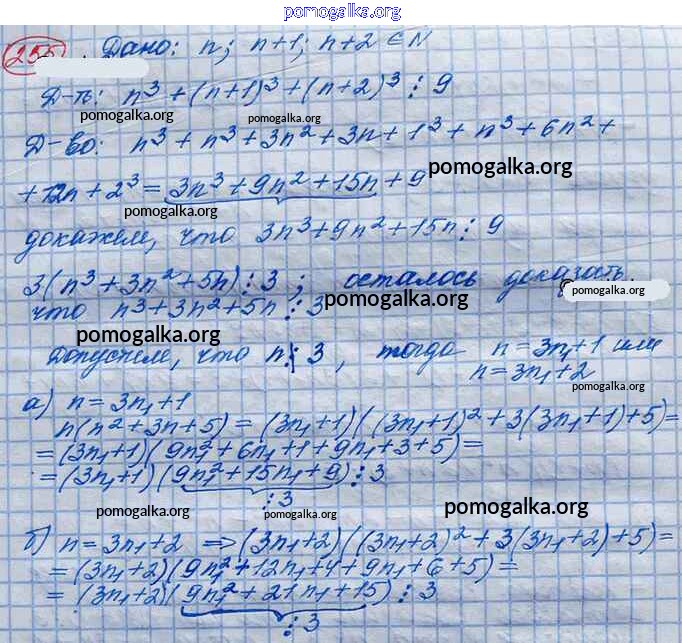 pomogalka.org
255. Дано: n; n+1; n+2 ∈ N
Д-ть: n³ + (n+1)³ + (n+2)³ ⋮ 9
pomogalka.org pomogalka.org
Д-во: n³ + n³ + 3n² + 3n + 1³ + n³ + 6n² +
pomogalka.org
+ 12n + 2³ = 3n³ + 9n² + 15n + 9
pomogalka.org
докажем, что 3n³ + 9n² + 15n ⋮ 9
3(n³ + 3n² + 5n) ⋮ 3 ; осталось доказать,
pomogalka.org
что n³ + 3n² + 5n ⋮ 3
pomogalka.org
pomogalka.org
Допустим, что n ⋮̸ 3, тогда n = 3n₁+1 или
n = 3n₁+2
pomogalka.org
а) n = 3n₁+1
n(n² + 3n + 5) = (3n₁+1)((3n₁+1)² + 3(3n₁+1)+5) =
= (3n₁+1)(9n₁² + 6n₁ + 1 + 9n₁ + 3 + 5) =
= (3n₁+1)(9n₁² + 15n₁ + 9) ⋮ 3
⋮ 3
pomogalka.org pomogalka.org pomogalka.org
б) n = 3n₁+2 ⇒ (3n₁+2)((3n₁+2)² + 3(3n₁+2)+5) =
= (3n₁+2)(9n₁² + 12n₁ + 4 + 9n₁ + 6 + 5) =
= (3n₁+2)(9n₁² + 21n₁ + 15) ⋮ 3
⋮ 3